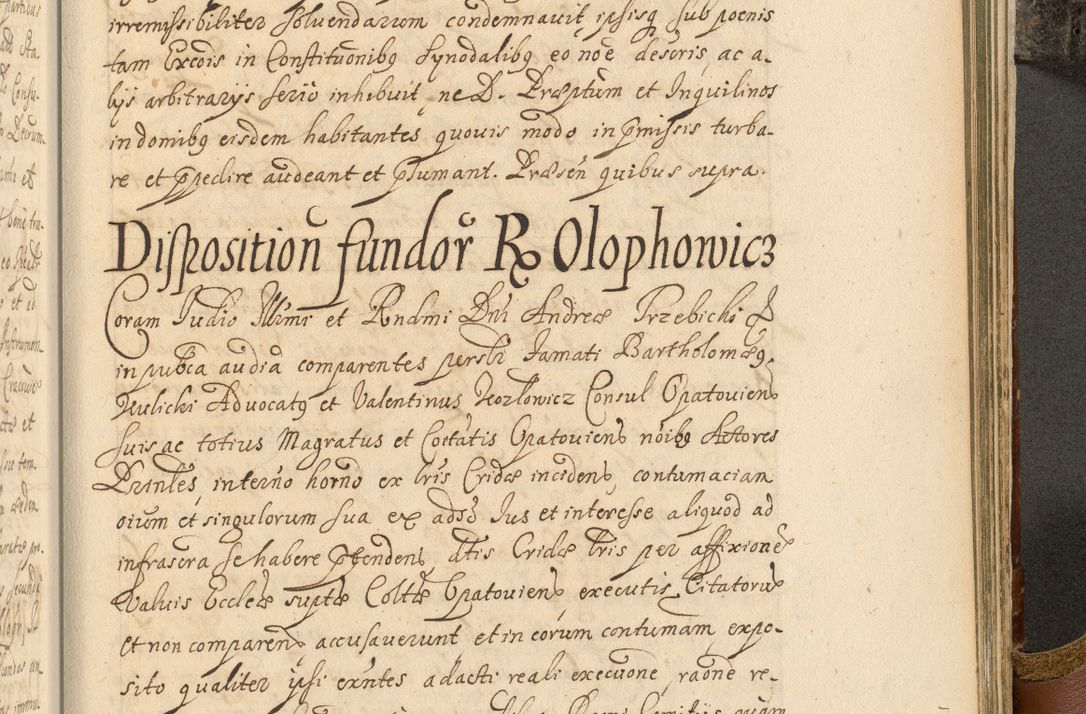 irremissibiliter solvendarum condemnavit ipsisq sub poenis
tam Excois in Constitutionibq Synodalibq eo noe descris, ac a-
lijs arbitrarijs serio inhibuit, ne D. Præptum et Inquilinos
in domibq eisdem habitantes quovis modo in pmissis turba-
re et ppedire audeant et psumant. Præsen quibus supra.
Disposition fundor R Olophowicz
Coram Judio Illmi et Rndmi Dni Andreæ Trzebicki E
in pubca audia comparentes persli famati Bartholomæq
Kulicki Advocatq et Valentinus Kozlowicz Consul Opatovien
suis ac totius Magratus et Coetatis Opatovien noibq Actores
Prinles, interno horno ex lris Cridæ inciden, contumaciam
oium et singulorum sua ex adso Jus et interesse aliquod ad
infrascra se habere ptenden, dtis Cridæ lris per affixione
Valuis Eccleæ suptæ Colltæ Opatovien executis Citatoru
et non comparen accusaverunt et in eorum contumam expo-
sito qualiter ipsi exntes adacti reali execuone, raone re-